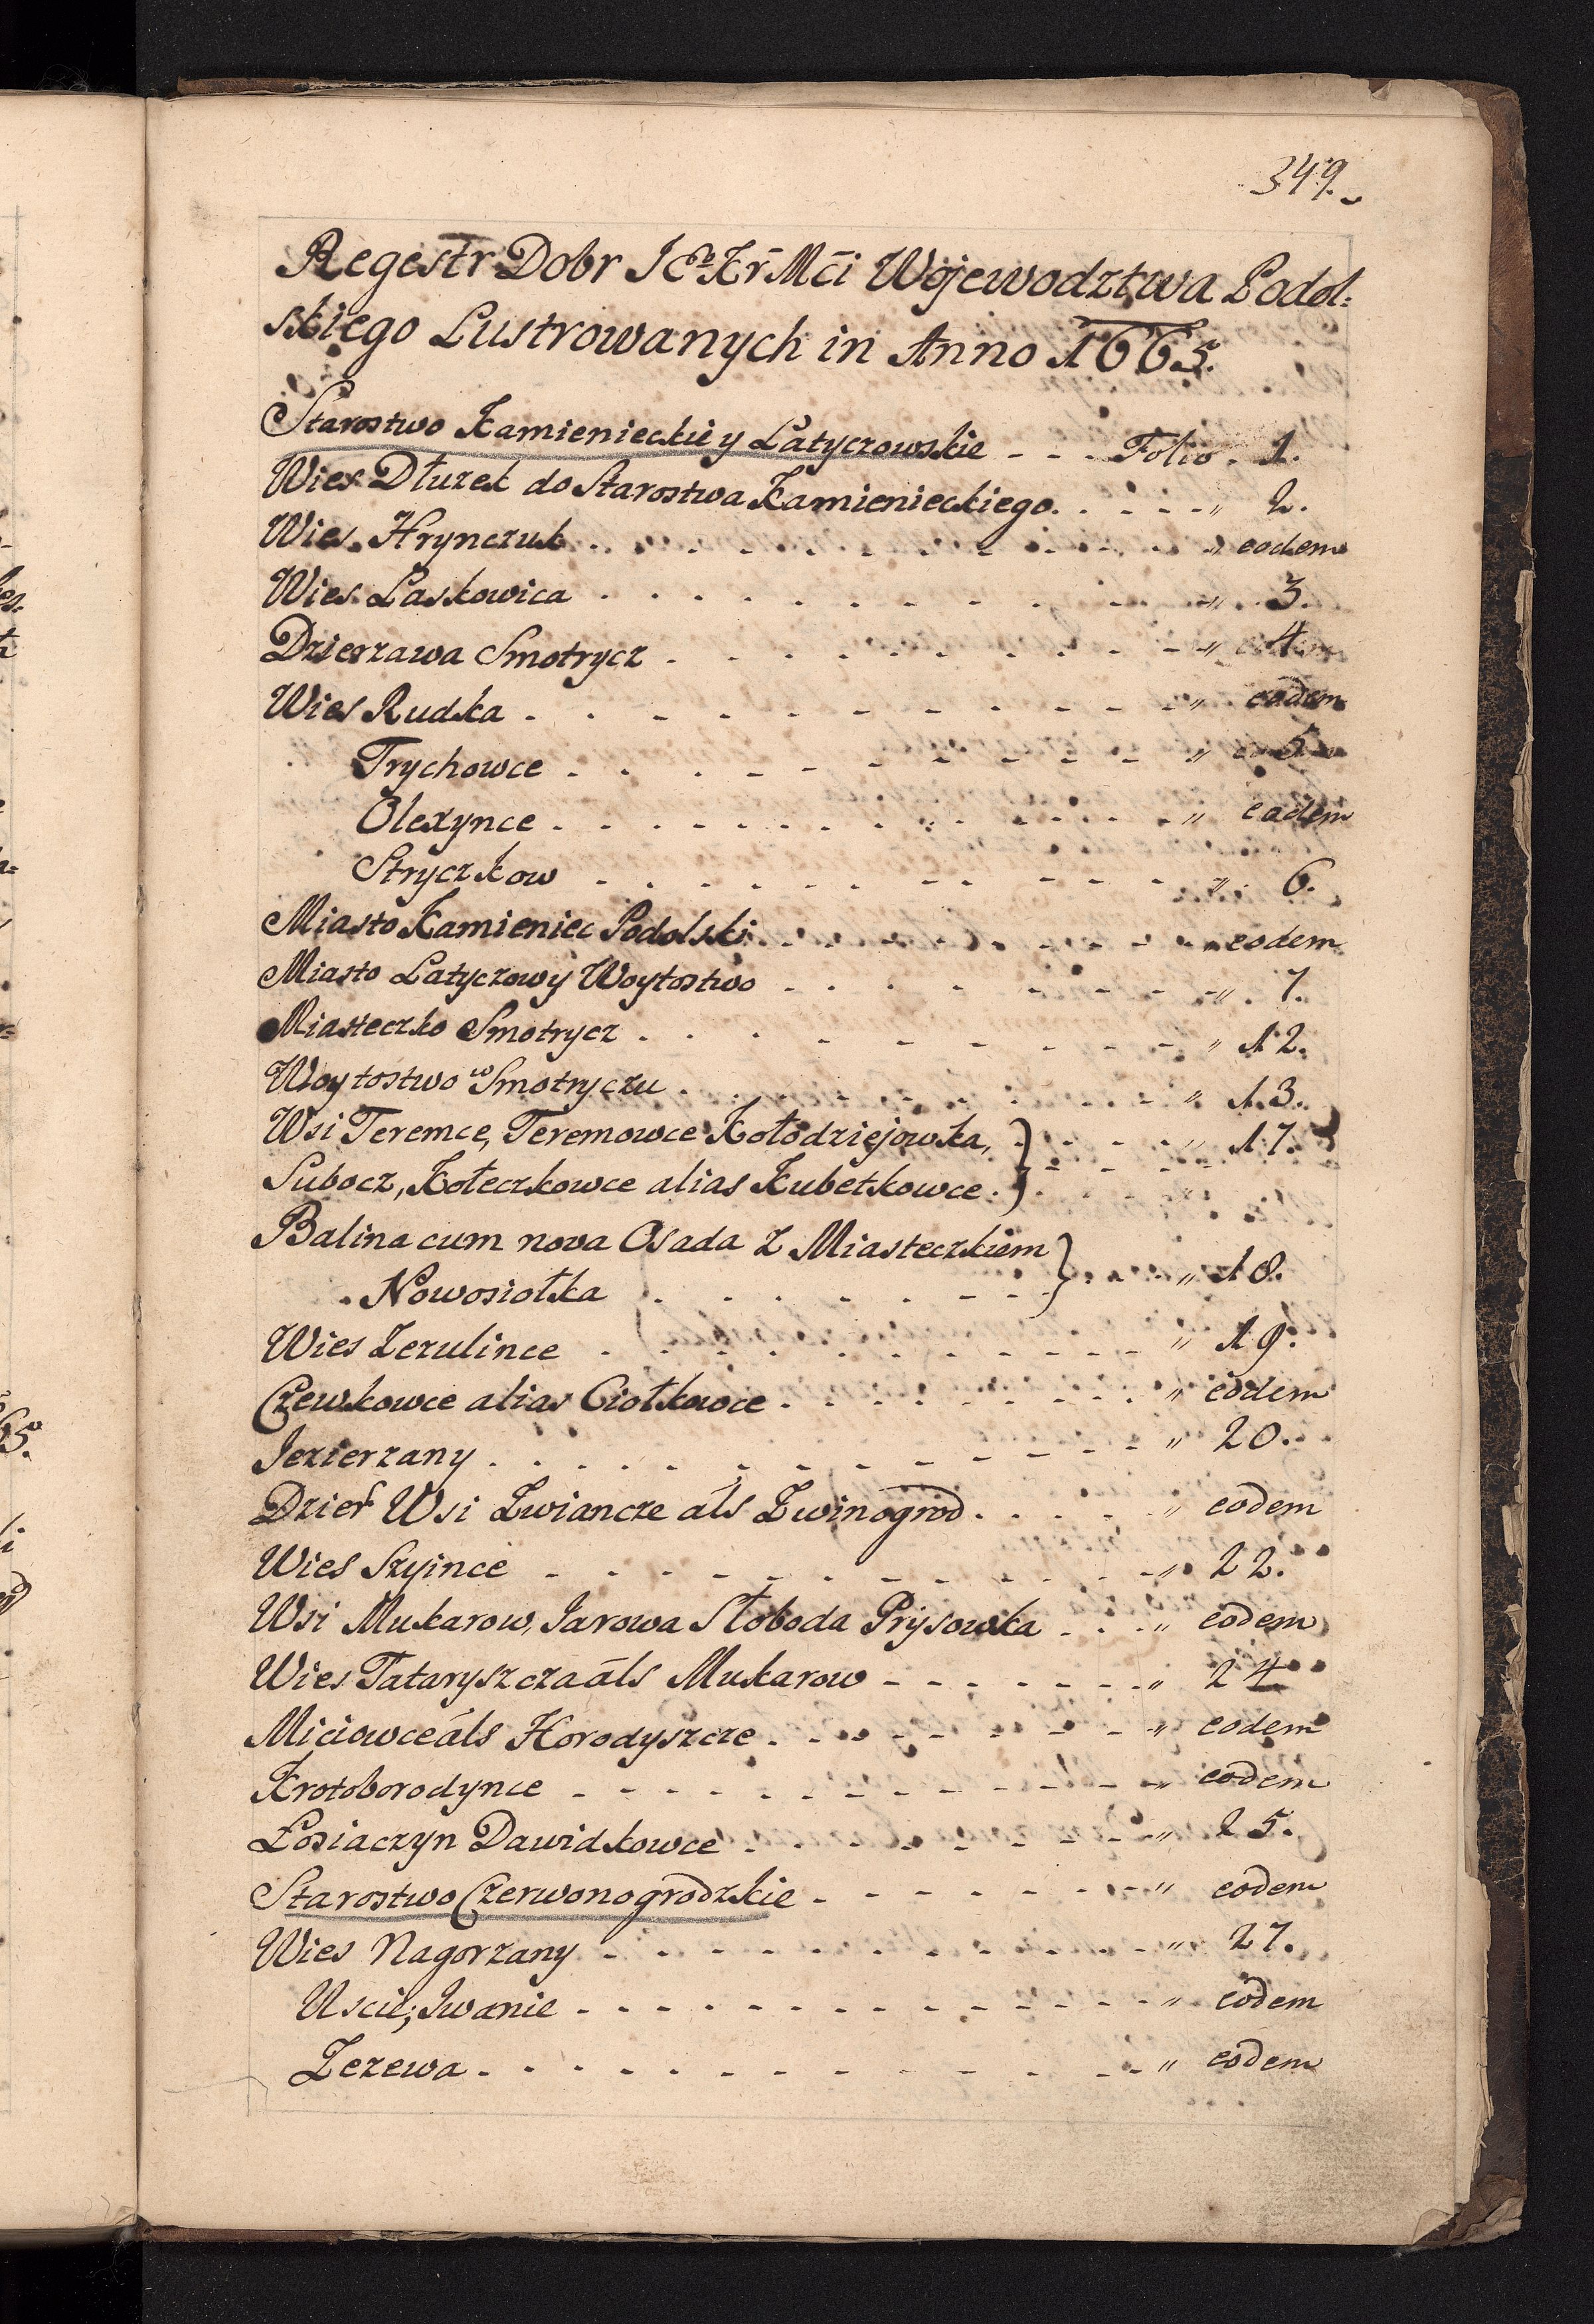 349.
Regestr Dobr J Co Kr Mci Wojewodztwa Podol:
skiego Lustrowanych in Anno 1665.
Starostwo Kamienieckie y Latyczowskie - - - Folio. 1.
Wies Dłuzek do Starostwa Kamienieckiego. . - - - „ 2.
Wies Hrynczuk . . . - - - „ eodem
Wies Laskowica . . . . . . „ 3.
Dzierzawa Smotrycz . - - - - „ 4.
Wies Rudka . - - - - „ eodem
Trychowce . . . - - - „ 5
Olexynce . . . . . . „ eadem
Stryczkow - . . . - - - „ 6.
Miasto Kamieniec Podolski . . . - - „ eodem
Miasto Latyczow y Woytostwo - . . . - - „ 7.
Miasteczko Smotrycz . . . - - - „ 12.
Woytostwo w Smotryczu . . . - - - „ 13.
Wsi Teremce, Teremowce Kołodziejowka, } - - - „ 17.
Subocz, Kołeczkowce alias Kubetkowce . } . - - - „
Balina cum nova Osada z Miasteczkiem } . - - „ 18.
Nowosiołka . . . . . - - }
Wies Zezulince . . . - - - „ 19.
Czewkowce alias Ciołkowce . . . . . . „ eodem
Jezierzany . . . . - - - „ 20.
Dzier Wsi Zwiancze als Zwinogrod . . . . „ eodem
Wies Szyince - - - - - „ 22.
Wsi Mukarow, Jarowa Słoboda Prysowka . . . „ eodem
Wies Tataryszcza als Mukarow - - - - - „ 24
Miciowce als Horodyszcze . . . - - - „ eodem
Krotoborodynce - - - - - „ eodem
Łosiaczyn Dawidkowce . . . - - - „ 25.
Starostwo Czerwonogrodzkie - - - - - „ eodem
Wies Nagorzany - - - - - „ 27.
Uscie, Iwanie - - - - - „ eodem
Zezewa . - - - - - „ eodem